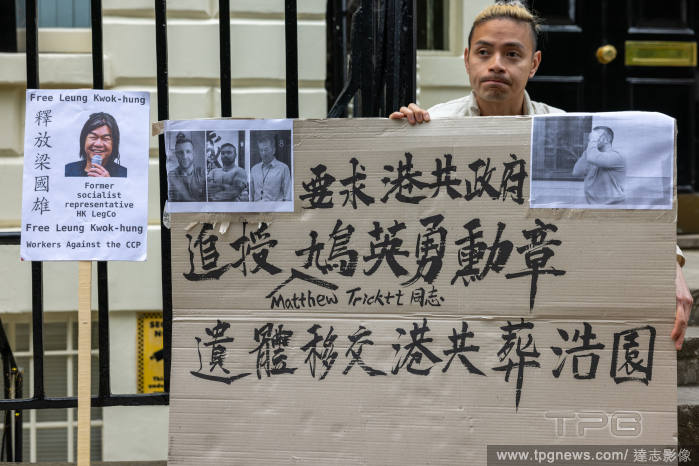 Free Leung Kwok-hung
釋放梁國雄
Former
socialist
representative
HK LegCo
Free Leung Kwok-hung
Workers Against the CCP
要求港共政府
追授鳩英勇勳章
Matthew Tricktt 同志
遺體移交港共葬浩園
TPG
www.tpgnews.com/ 達志影像